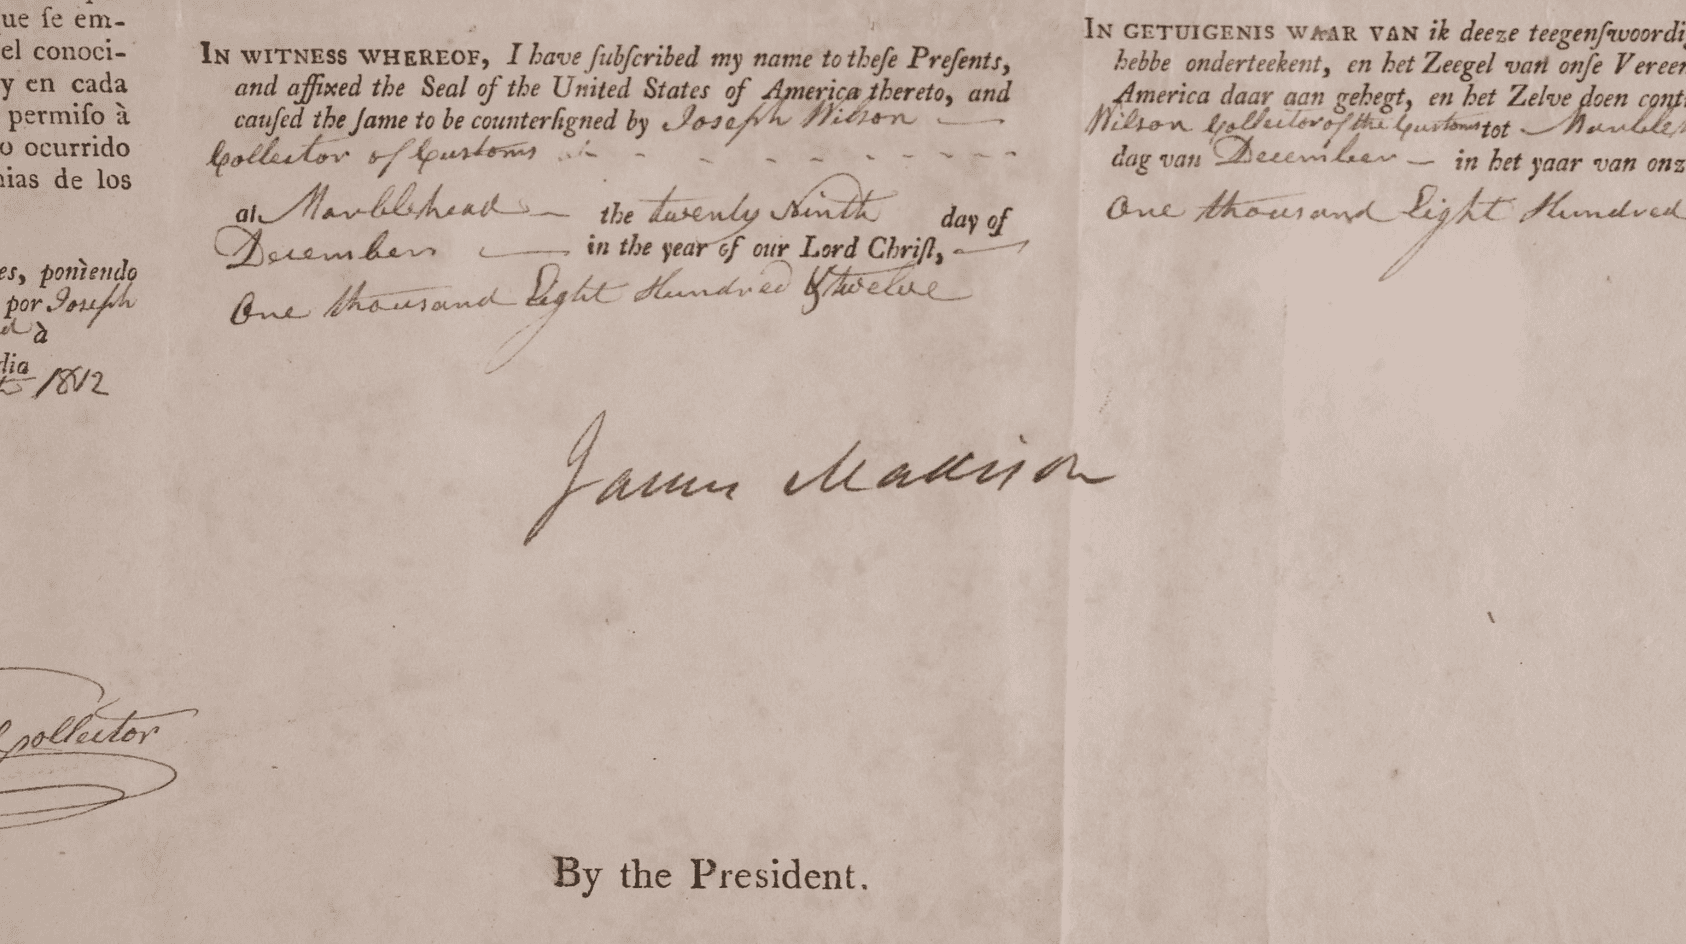 ue ſe em-
el conoci-
y en cada
permiſo à
o ocurrido
nias de los
es, poniendo
por Joseph
à
dia
1812
Collector
IN WITNESS WHEREOF, I have ſubſcribed my name to theſe Preſents,
and affixed the Seal of the United States of America thereto, and
cauſed the ſame to be counterſigned by Joseph Wilson
Collector of Customs
at Marblehead the twenty Ninth day of
December in the year of our Lord Chriſt,
One thousand Eight Hundred & twelve
James Madison
By the President.
IN GETUIGENIS WAAR VAN ik deeze teegenſwoordi
hebbe onderteekent, en het Zeegel van onſe Vereen
America daar aan gehegt, en het Zelve doen cont
Wilson Collector of the Customs tot Marbleh
dag van December in het yaar van onz
One thousand Eight Hundred